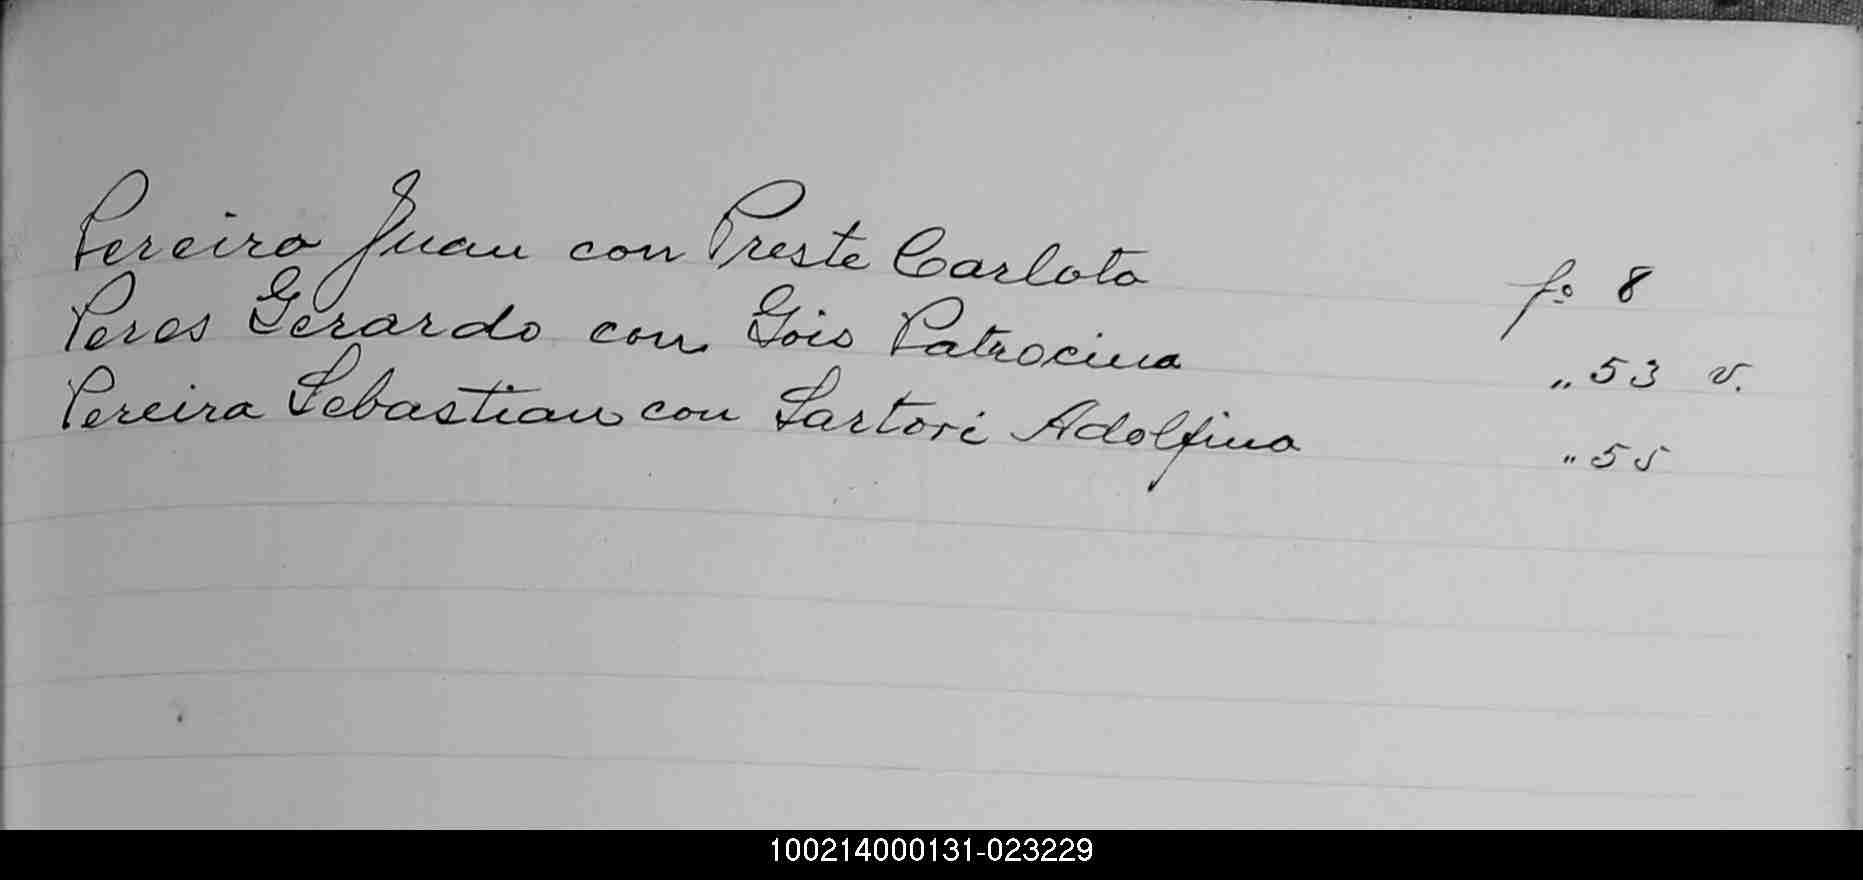 Pereira Juan con Preste Carlota fo 8
Peres Gerardo con Gois Patrocina „ 53 v.
Pereira Sebastian con Sartori Adolfina „ 55
100214000131-023229